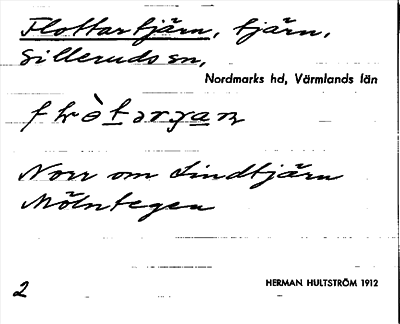 Flottartjärn, tjärn,
Silleruds sn,
Nordmarks hd, Värmlands län
Norr om Lindtjärn
Mölntegen
2
HERMAN HULTSTRÖM 1912